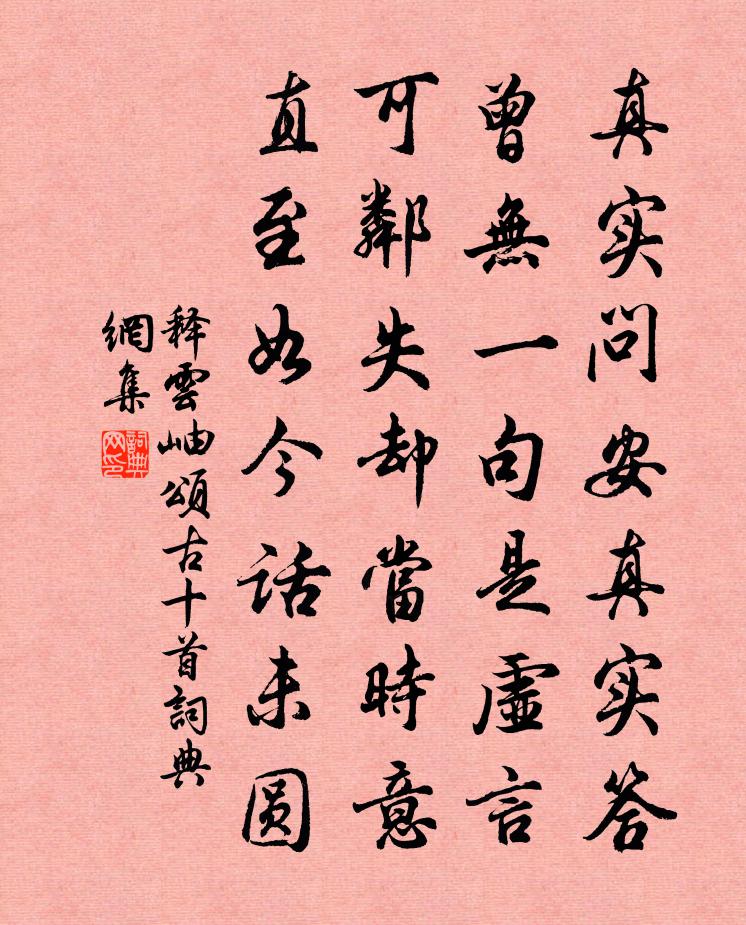 真实问安真实答
曾無一句是虛言
可鄰失却當時意
直至如今话未圆
释雲岫頌古十首詞典
網集
詞典网印